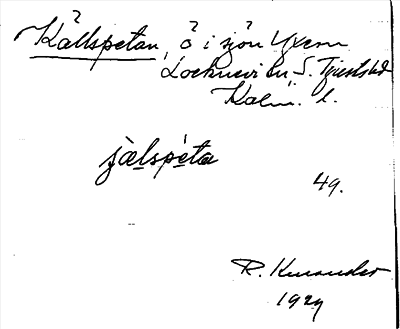 Källspetan, ö i sjön Yxern
Locknevi sn S. Tjusts hd
Kalm. l.
jälspeta
49.
R. Knuander
1929